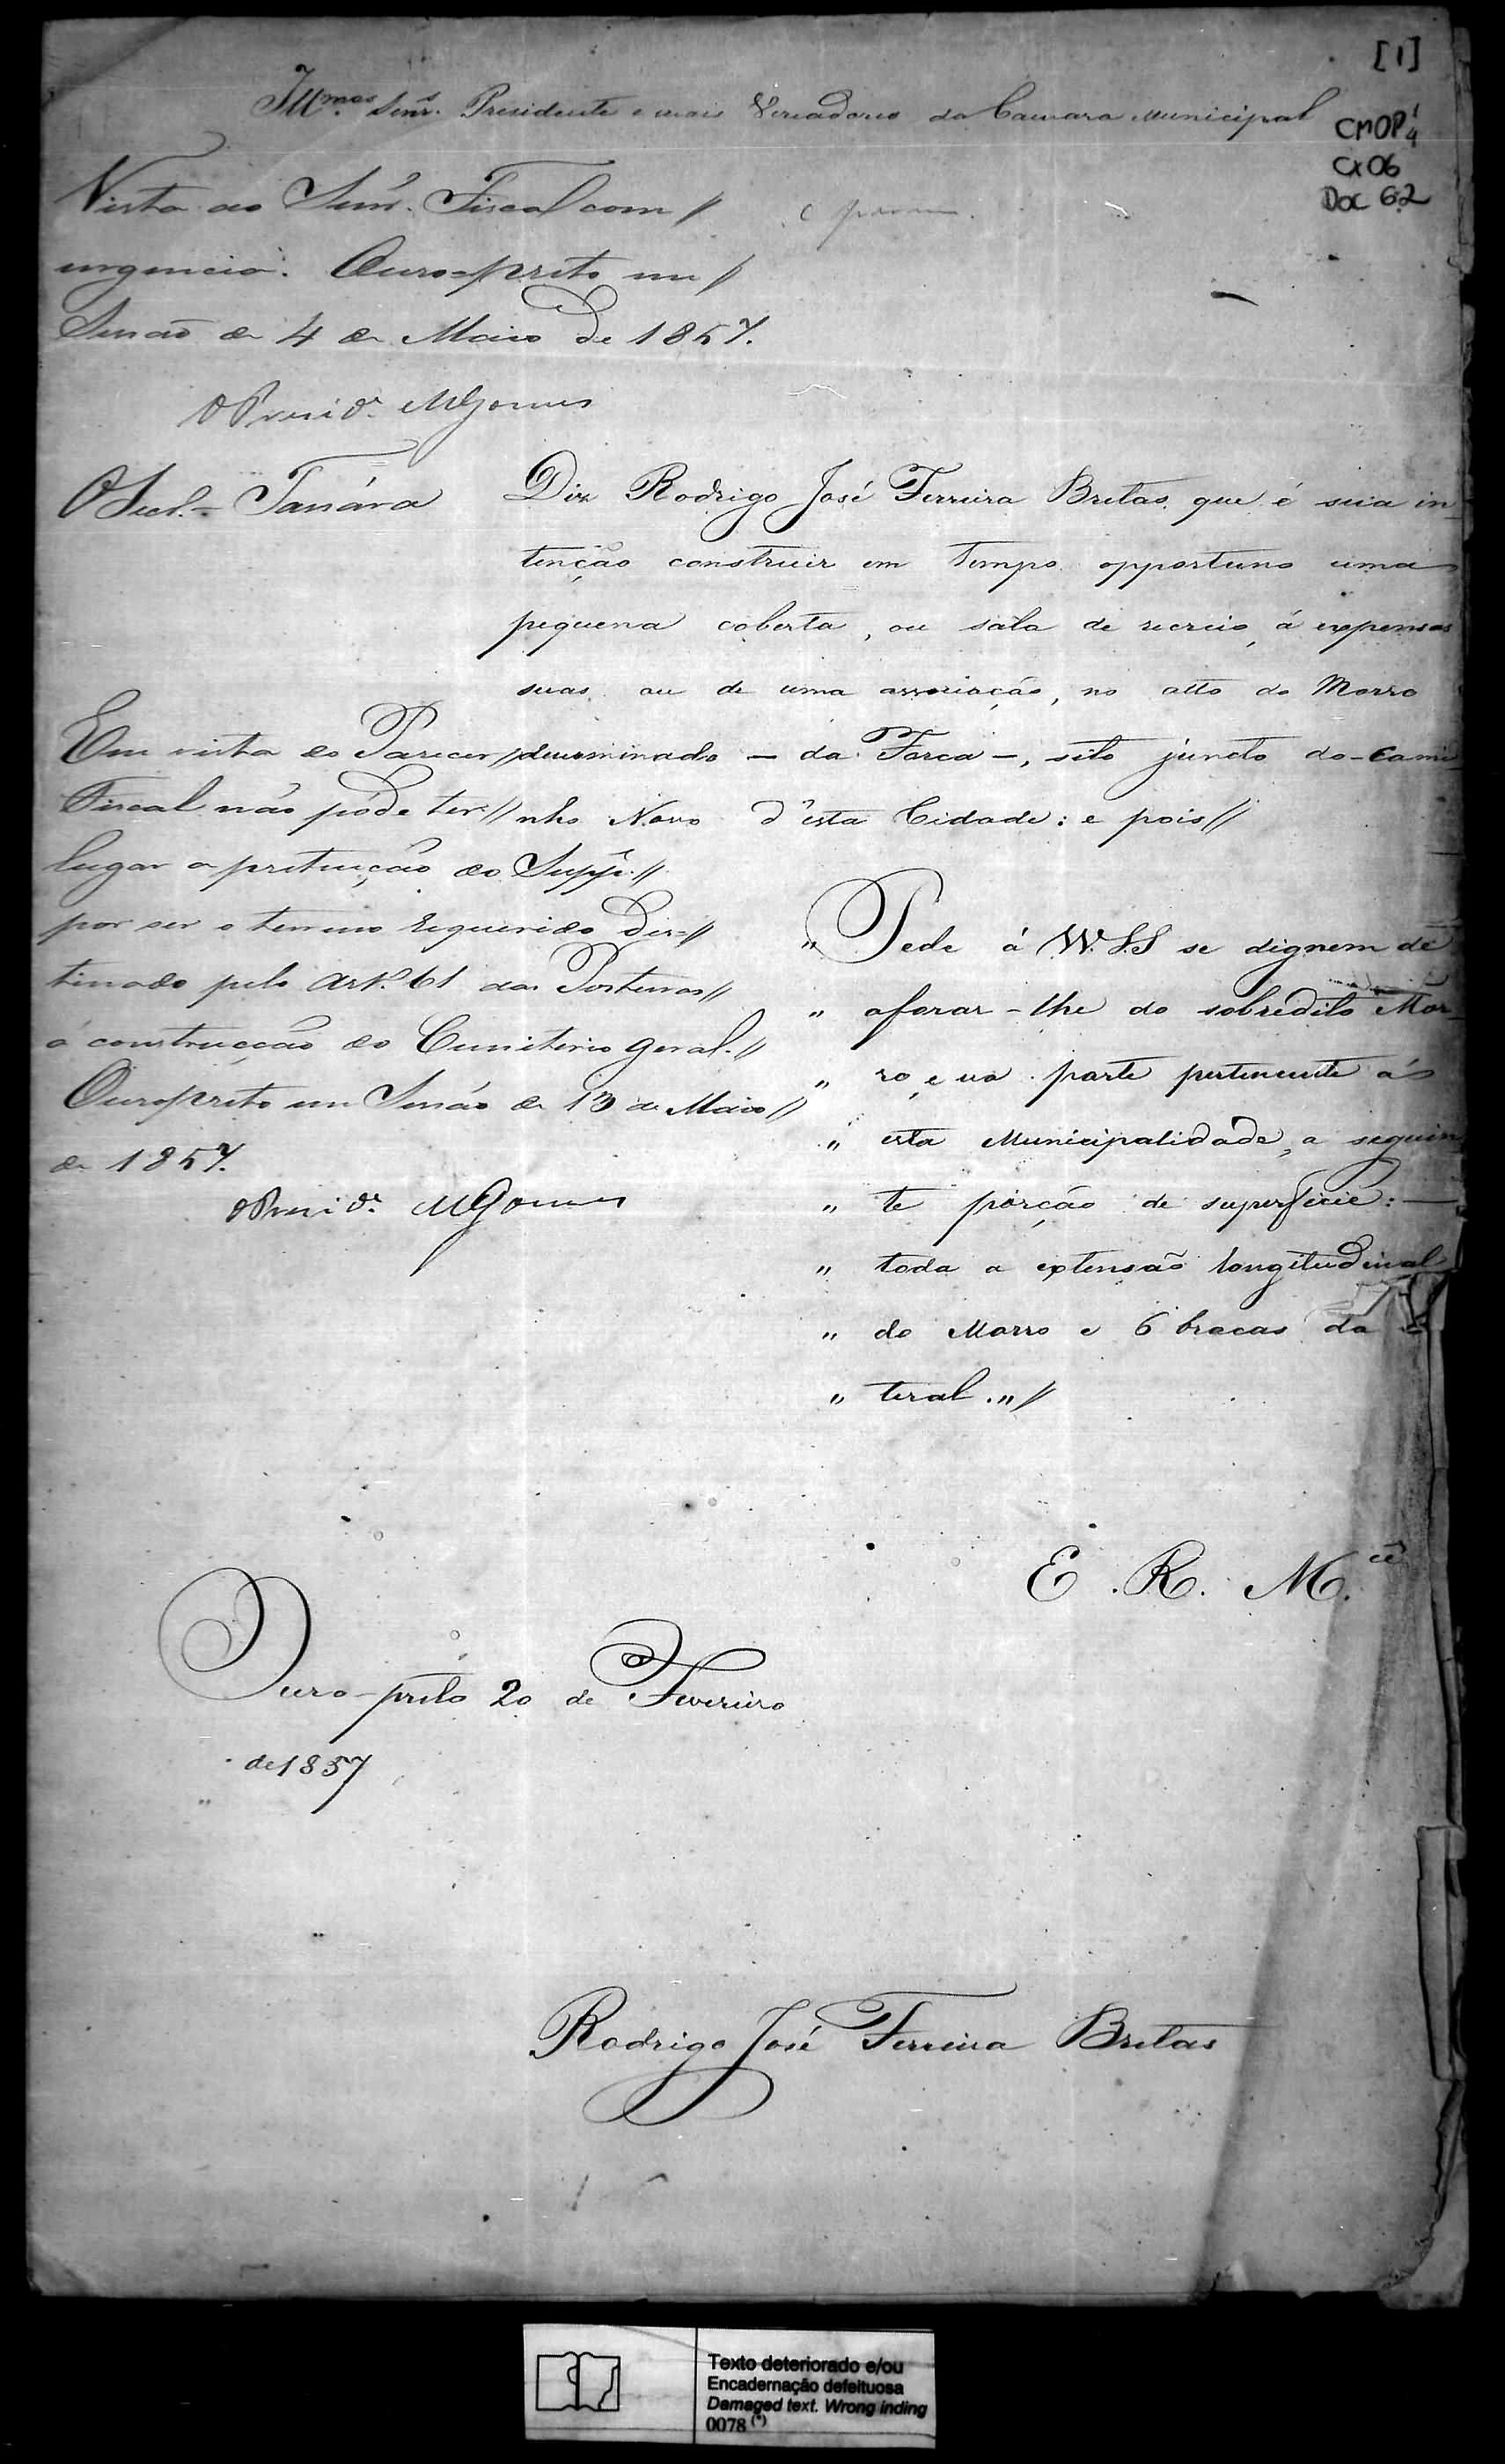 [1]
Ill.mos Senr.s Presidente e mais Vereadores da Camara Municipal
CMOP
Cx 06
Doc 62
Vista ao Senr. Fiscal com //
urgencia. Ouro=preto em //
Sessão de 4 de Maio de 1857.
O Presid.e MGomes
O Secr.=
Diz Rodrigo José Ferreira Bretas, que é sua in-
tenção construir em tempo opportuno uma
pequena coberta, ou sala de recreio, á expensas
suas ou de uma associação, no alto do Morro
denominado — da Forca —, sito juncto do - Cami-
nho Novo d'esta Cidade: e pois //
Em vista do Parecer //
Fiscal não póde ter //
lugar a pretenção do Supp.e //
por ser o terreno requerido des= //
tinado pelo Art.º 61 das Posturas //
á construcção do Cemiterio geral. //
Ouropreto em Sessão de 13 de Maio //
de 1857.
O Presid.e MGomes
" Pede á W.S.S se dignem de
" aforar-lhe do sobredito Mor-
" ro, e na parte pertencente á
" esta Municipalidade, a seguin-
" te porção de superficie: —
" toda a extensão longitudinal
" do Morro e 6 bracas da
" teral. " //
E. R. M.cê
Ouro-preto 20 de Fevereiro
de 1857
Rodrigo José Ferreira Bretas
Texto deteriorado e/ou
Encadernação defeituosa
Damaged text. Wrong inding
0078 (*)